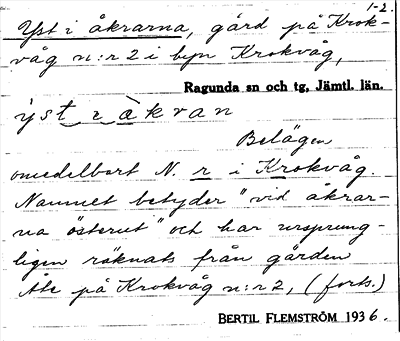 1-2.
Yst i åkrarna, gård på Krok-
våg n:r 2 i byn Krokvåg,
Ragunda sn och tg, Jämtl. län.
ýst i àkran
Belägen
omedelbart N. r i Krokvåg.
Namnet betyder "vid åkrar-
na österut" och har ursprung-
ligen räknats från gården
Åte på Krokvåg n:r 2, (forts.)
BERTIL FLEMSTRÖM 1936.